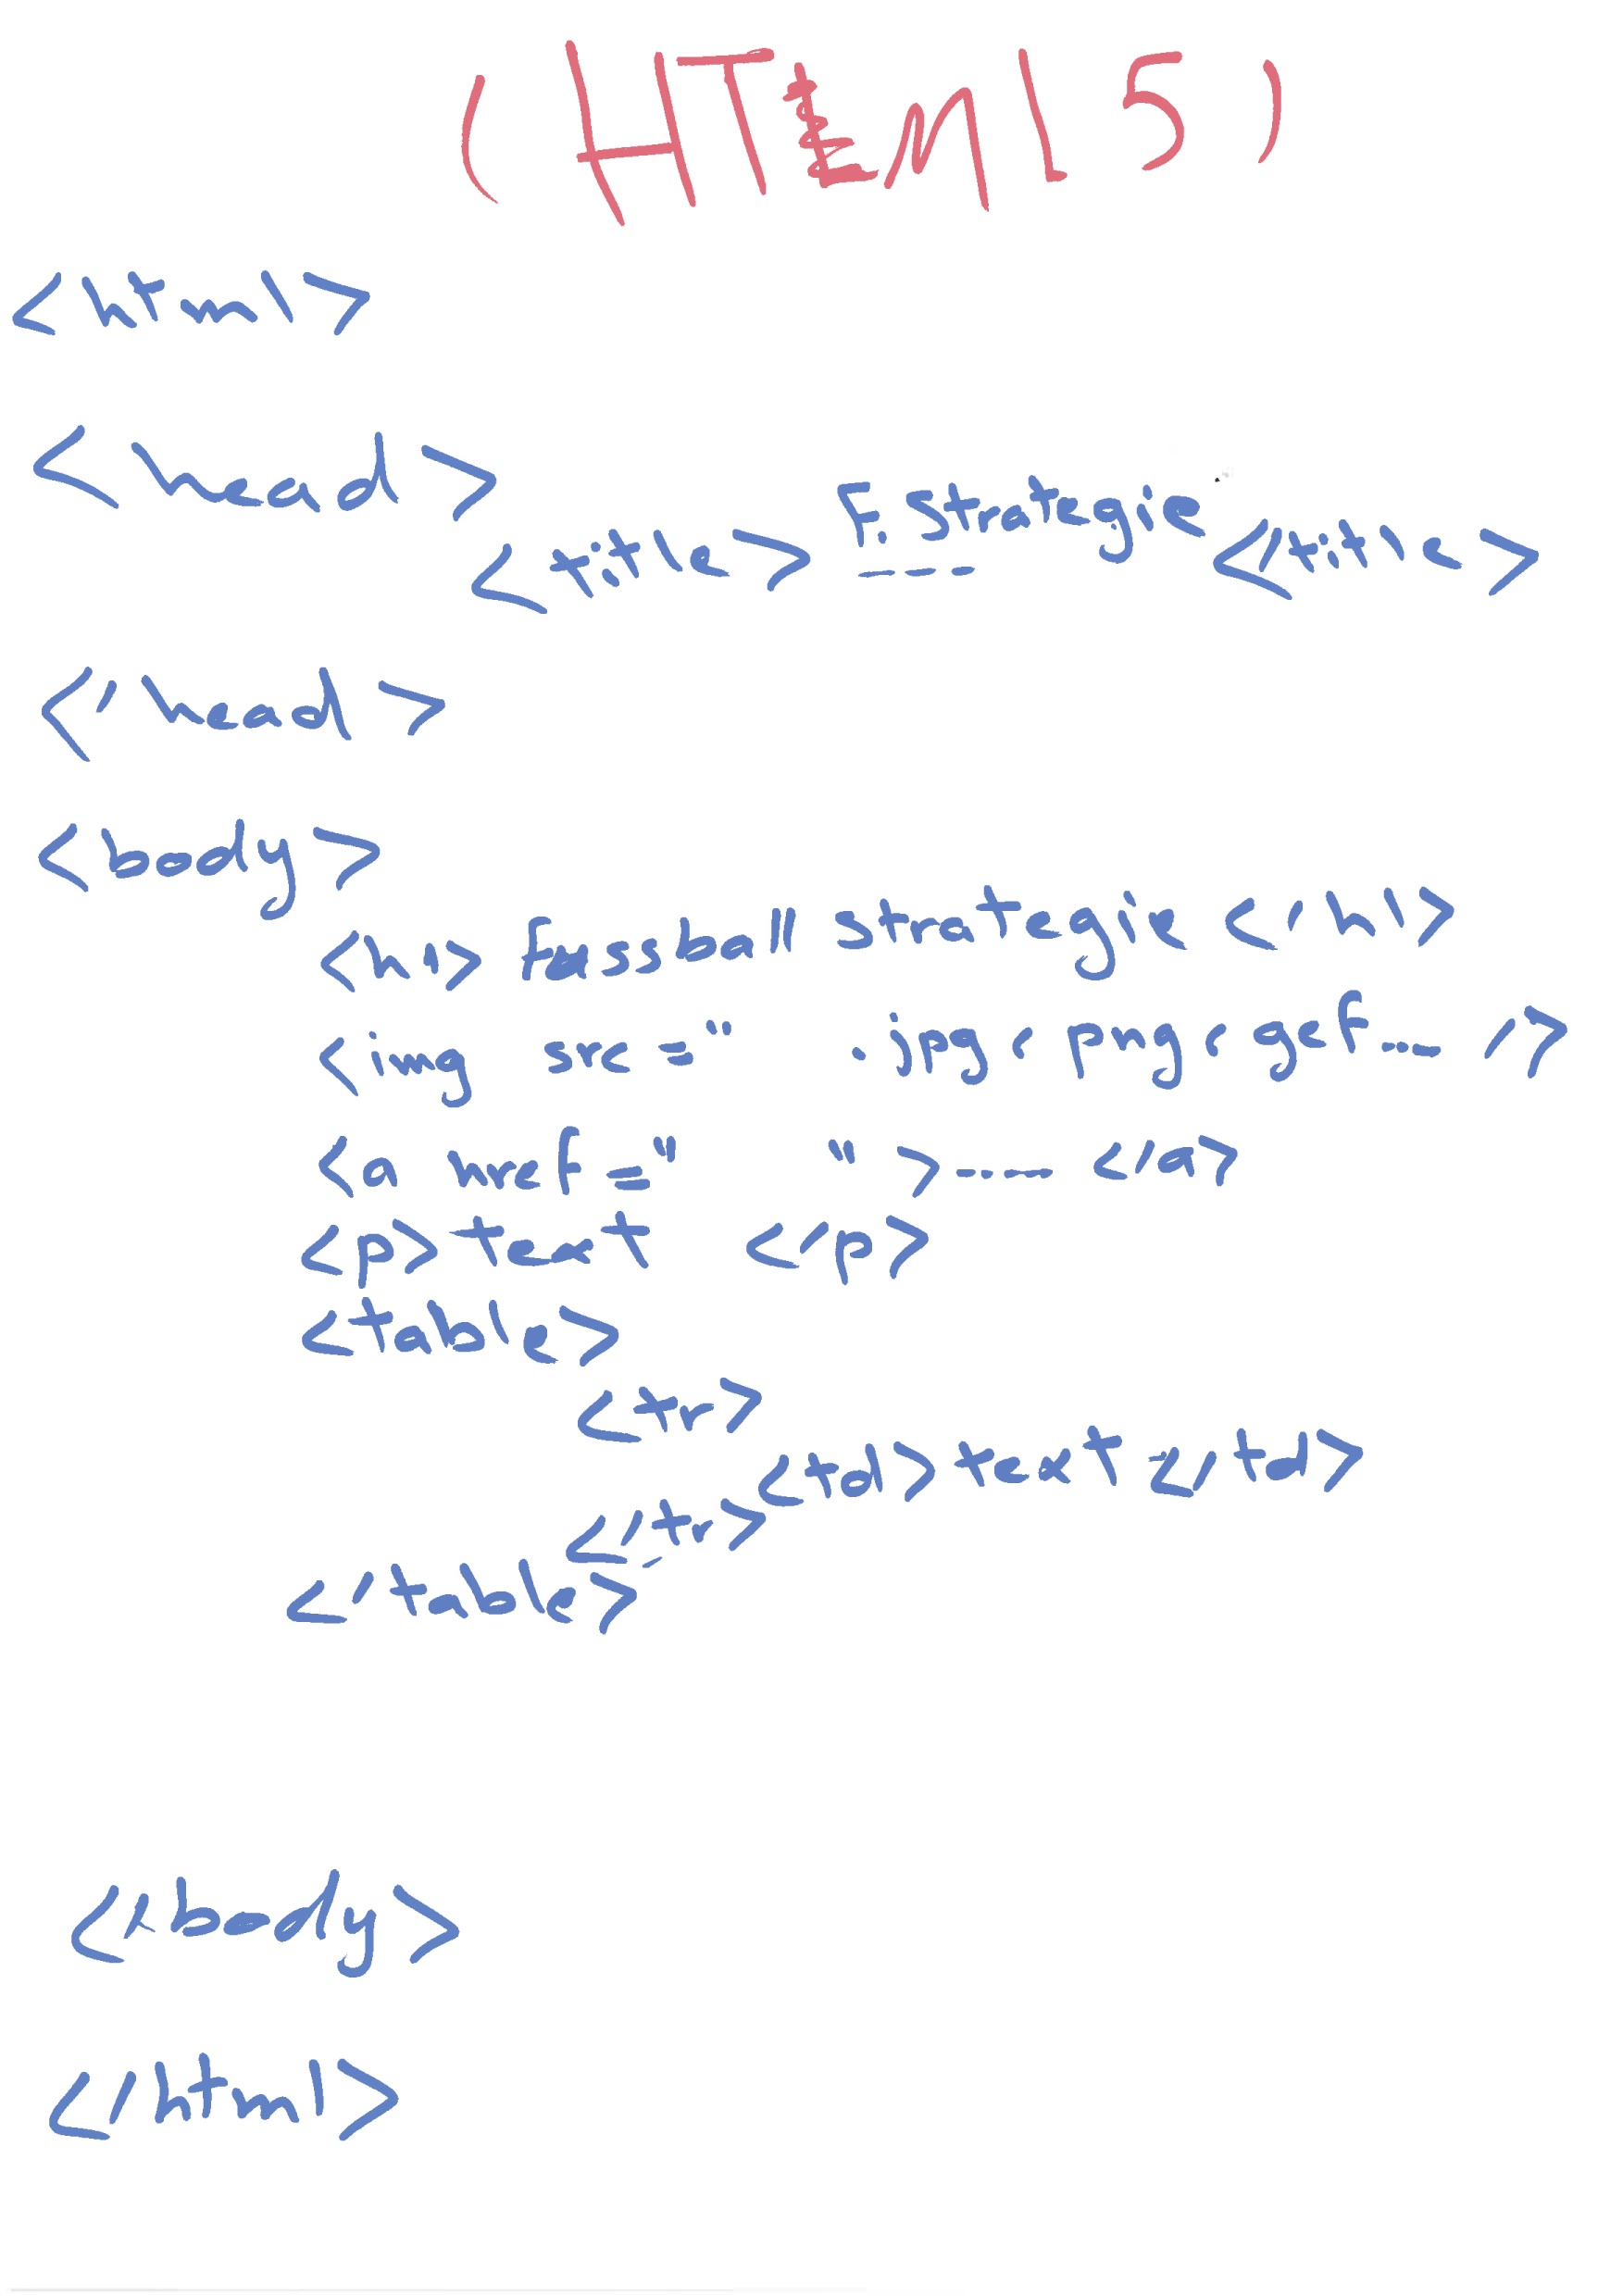 (HTml 5)
<html>
<head>
<title> F. Strategie </title>
</head>
<body>
<h1> fussball strategie </h1>
<img src=" .jpg, png, gef... />
<a href=" " >---- </a>
<p> text </p>
<table>
<tr>
<td> text </td>
</tr>
</table>
</body>
</html>